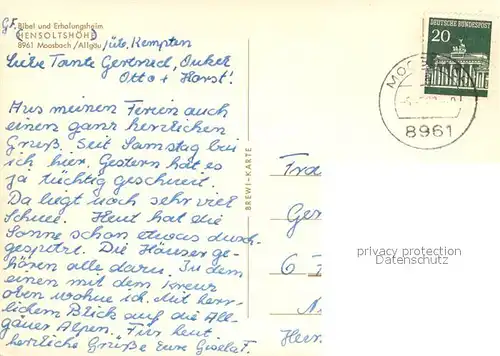 GF.
Bibel und Erholungsheim
HENSOLTSHÖHE
8961 Moosbach/Allgäu
/üb. Kempten
Liebe Tante Gertrud, Onkel
Otto + Horst!
Aus meinen Ferien auch
einen ganz herzlichen
Gruß. Seit Samstag bin
ich hier. Gestern hat es
ja tüchtig geschneit.
Da liegt noch sehr viel
Schnee. Heut hat die
Sonne schon etwas durch-
gespitzt. Die Häuser ge-
hören alle dazu. In dem
einen mit dem Kreuz
oben wohne ich. Mit herr-
lichem Blick auf die All-
gäuer Alpen. Für heut
herzliche Grüße Eure Gisela F.
BREWI-KARTE
DEUTSCHE BUNDESPOST
20
8961
Fra
Ger
6
N
Herr
privacy protection
Datenschutz